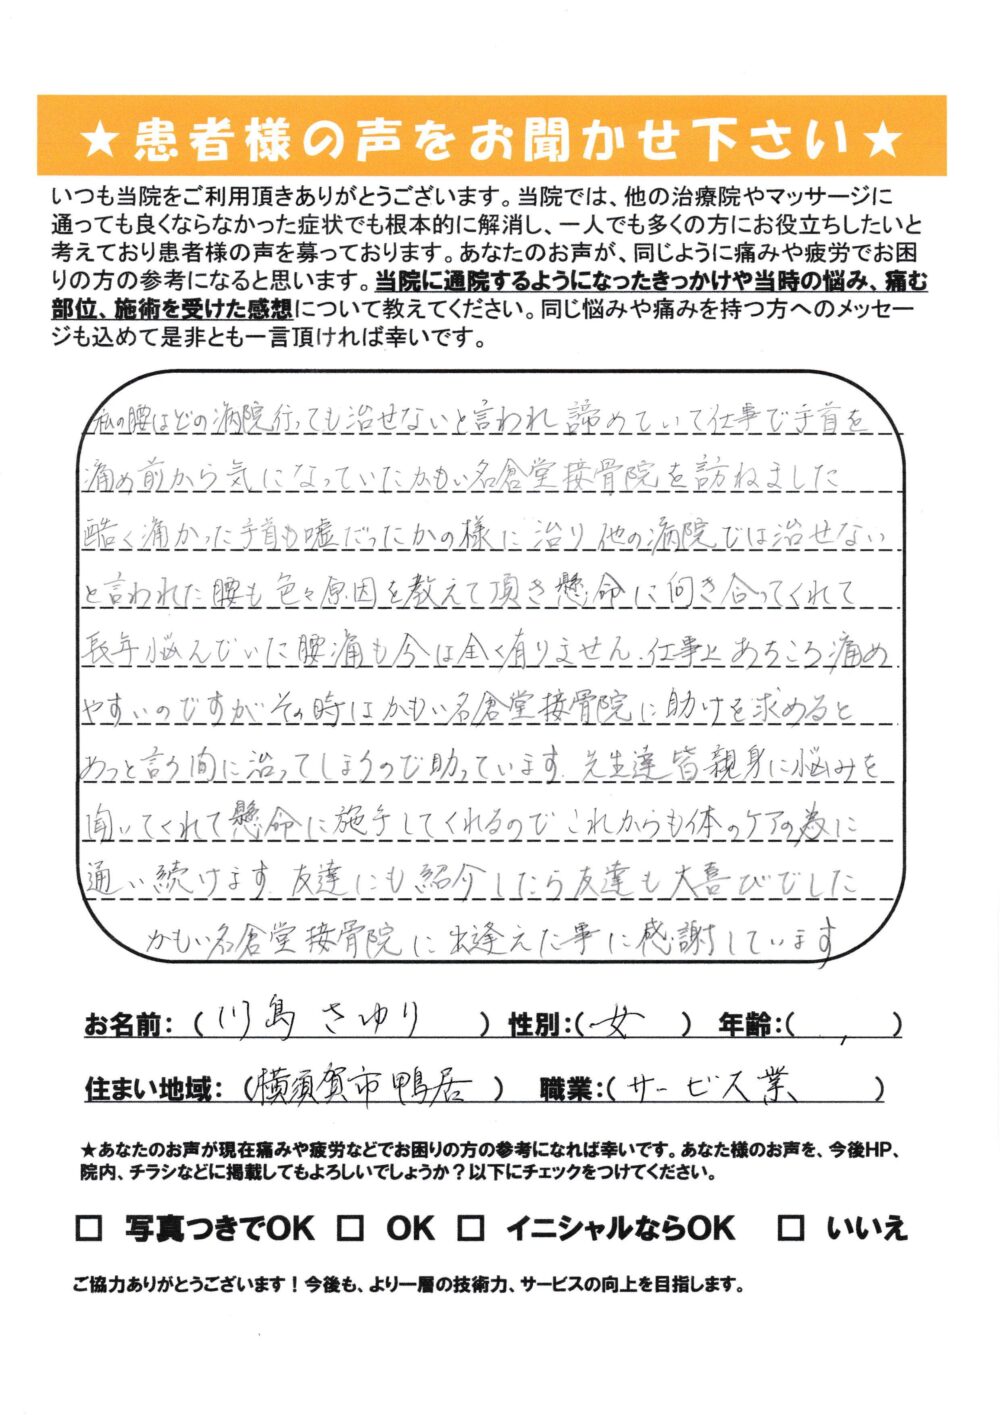 ★患者様の声をお聞かせ下さい★
いつも当院をご利用頂きありがとうございます。当院では、他の治療院やマッサージに
通っても良くならなかった症状でも根本的に解消し、一人でも多くの方にお役立ちしたいと
考えており患者様の声を募っております。あなたのお声が、同じように痛みや疲労でお困
りの方の参考になると思います。当院に通院するようになったきっかけや当時の悩み、痛む
部位、施術を受けた感想について教えてください。同じ悩みや痛みを持つ方へのメッセー
ジも込めて是非とも一言頂ければ幸いです。
私の腰はどの病院行っても治せないと言われ諦めていて仕事で手首を
痛め前から気になっていたかもい名倉堂接骨院を訪ねました
酷く痛かった手首も嘘だったかの様に治り他の病院では治せない
と言われた腰も色々原因を教えて頂き懸命に向き合ってくれて
長年悩んでいた腰痛も今は全く有りません.仕事上あちこち痛め
やすいのですがその時はかもい名倉堂接骨院に助けを求めると
あっと言う間に治ってしまうので助っています.先生達皆親身に悩みを
聞いてくれて懸命に施手してくれるのでこれからも体のケアの為に
通い続けます.友達にも紹介したら友達も大喜びでした
かもい名倉堂接骨院に出逢えた事に感謝しています
お名前：（川島 さゆり）性別：（女）年齢：（　）
住まい地域：（横須賀市鴨居）職業：（サービス業）
★あなたのお声が現在痛みや疲労などでお困りの方の参考になれば幸いです。あなた様のお声を、今後HP、
院内、チラシなどに掲載してもよろしいでしょうか？以下にチェックをつけてください。
□ 写真つきでOK □ OK □ イニシャルならOK □ いいえ
ご協力ありがとうございます！今後も、より一層の技術力、サービスの向上を目指します。